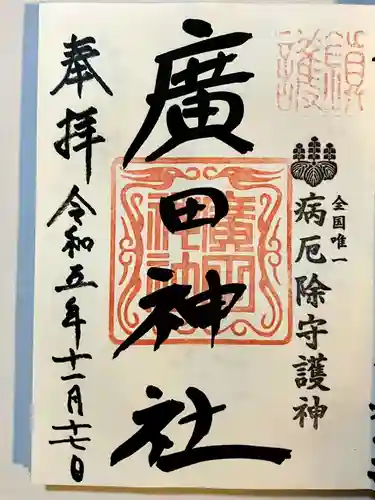 全国唯一
病厄除守護神
廣田神社
奉拝
令和五年十一月十七日